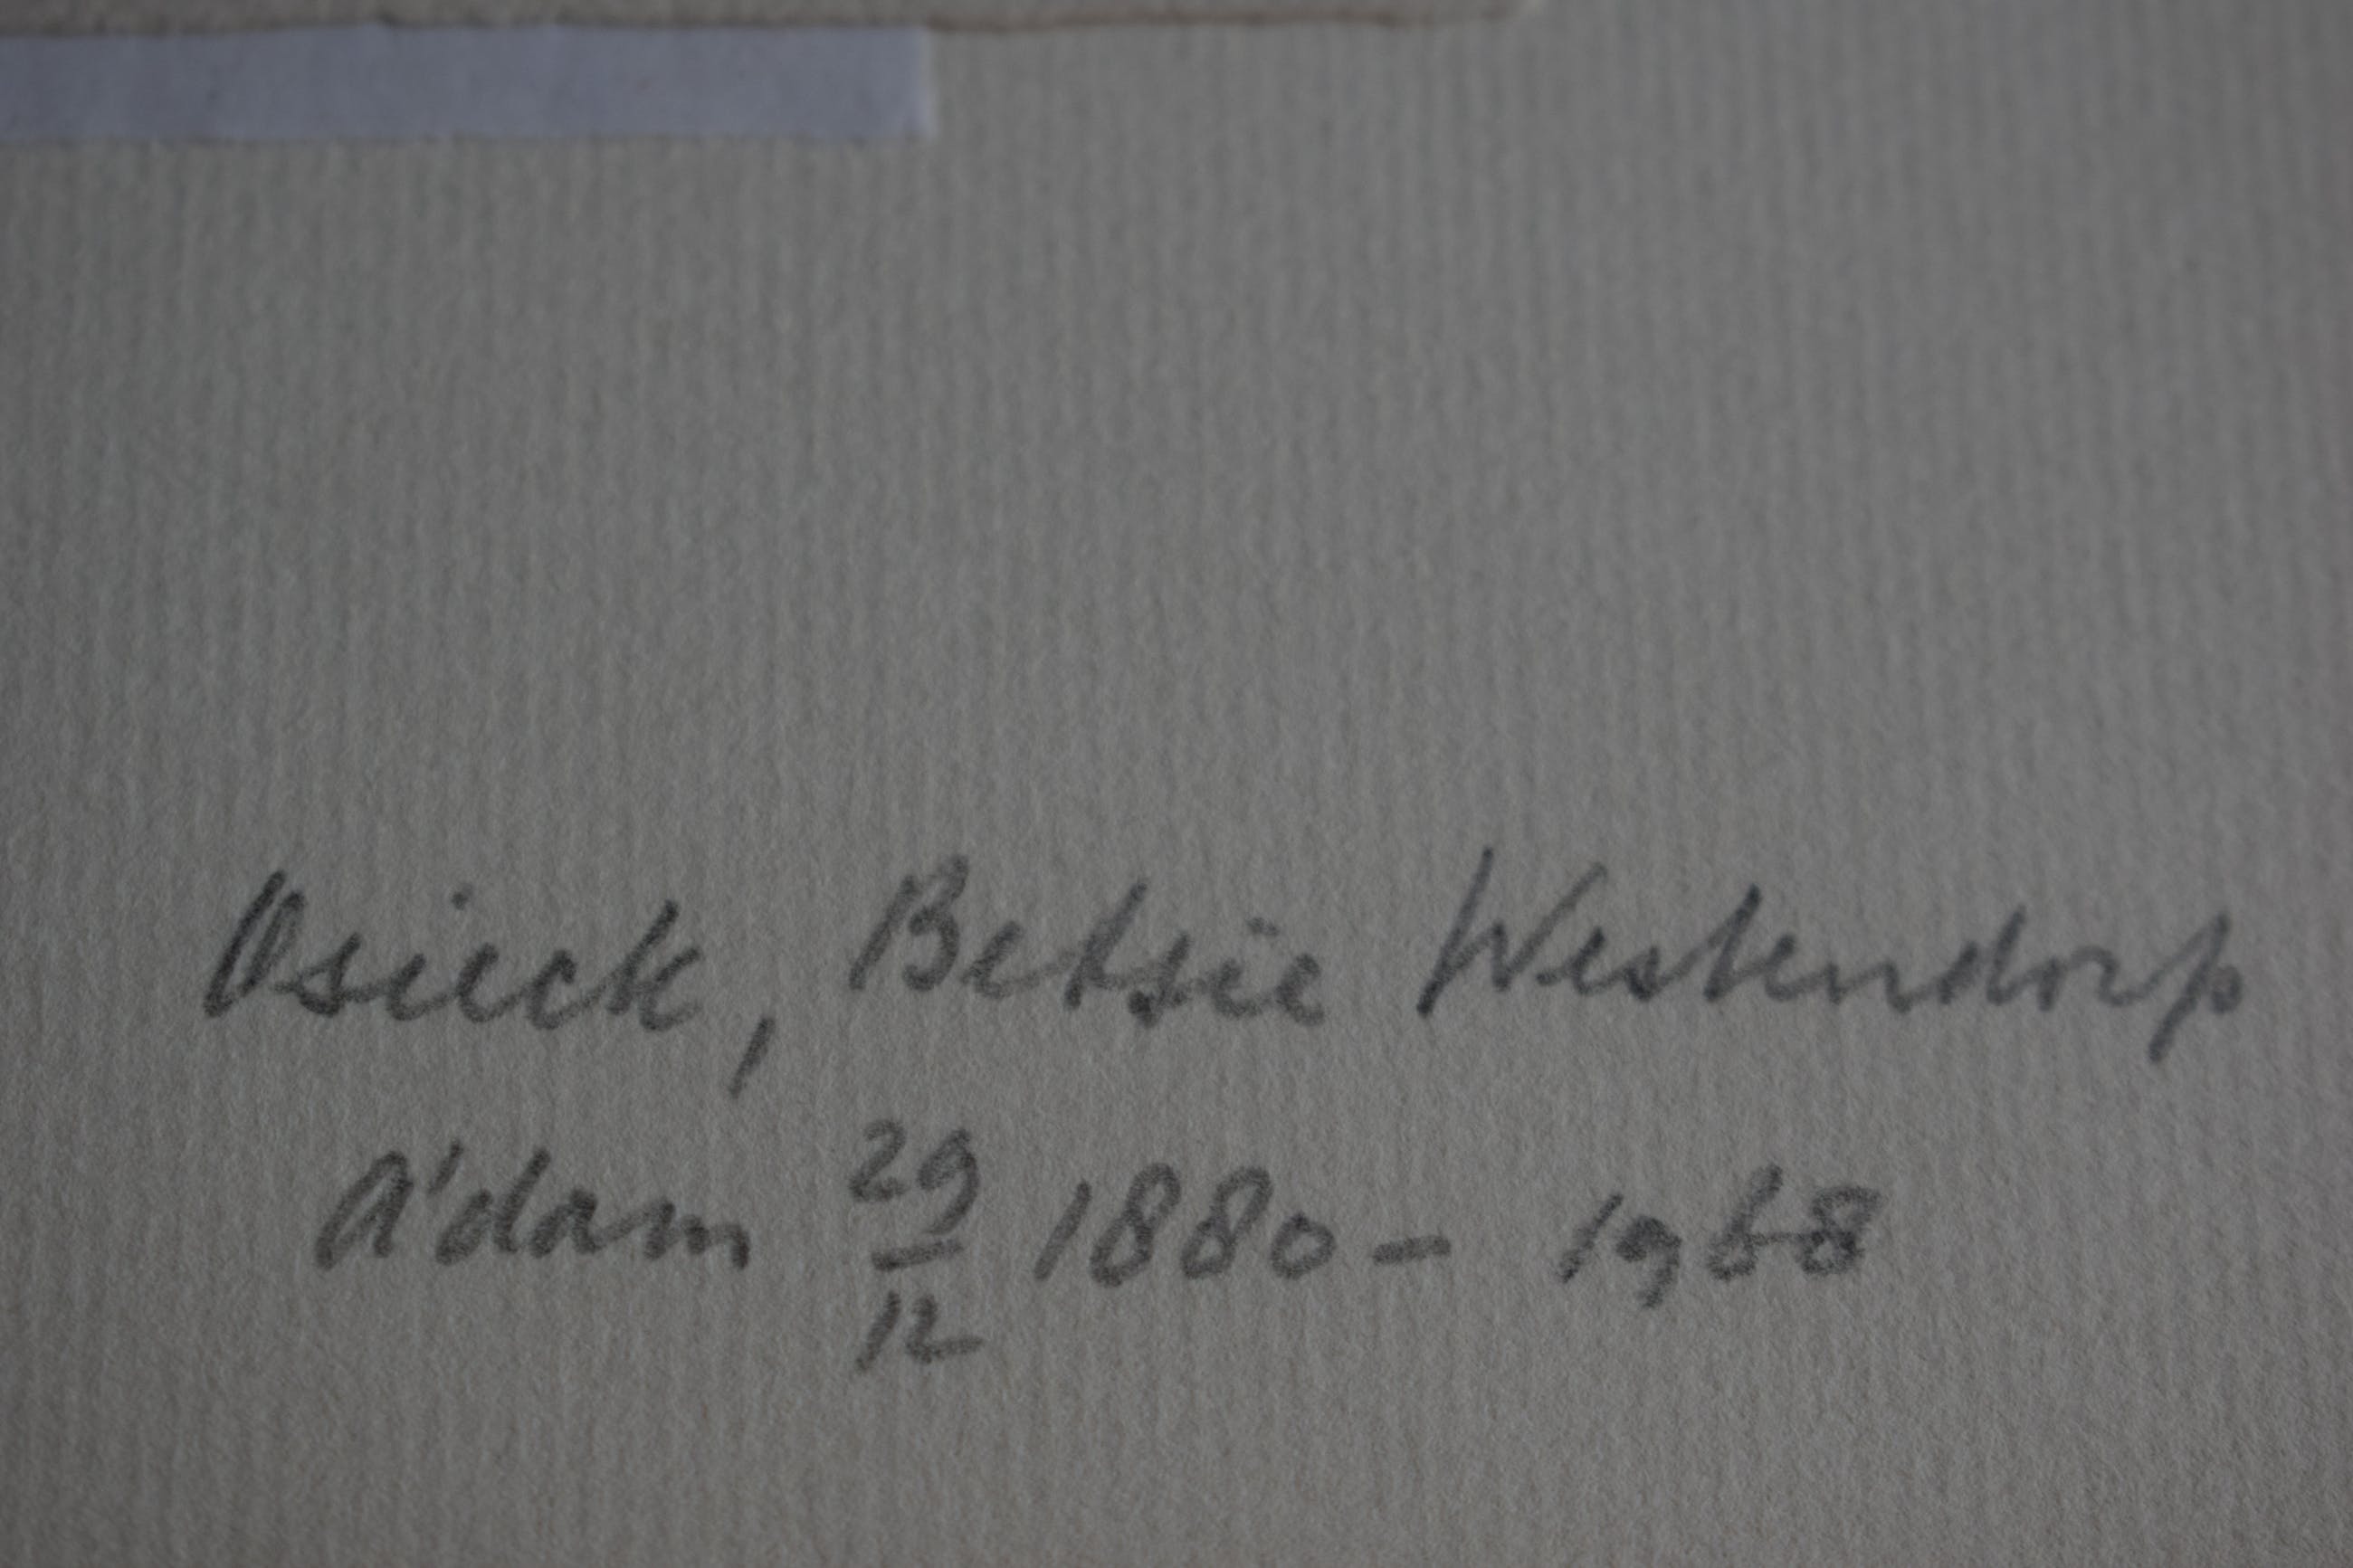 Osieck, Betsie Westendorp
A'dam 29/12 1880 - 1968